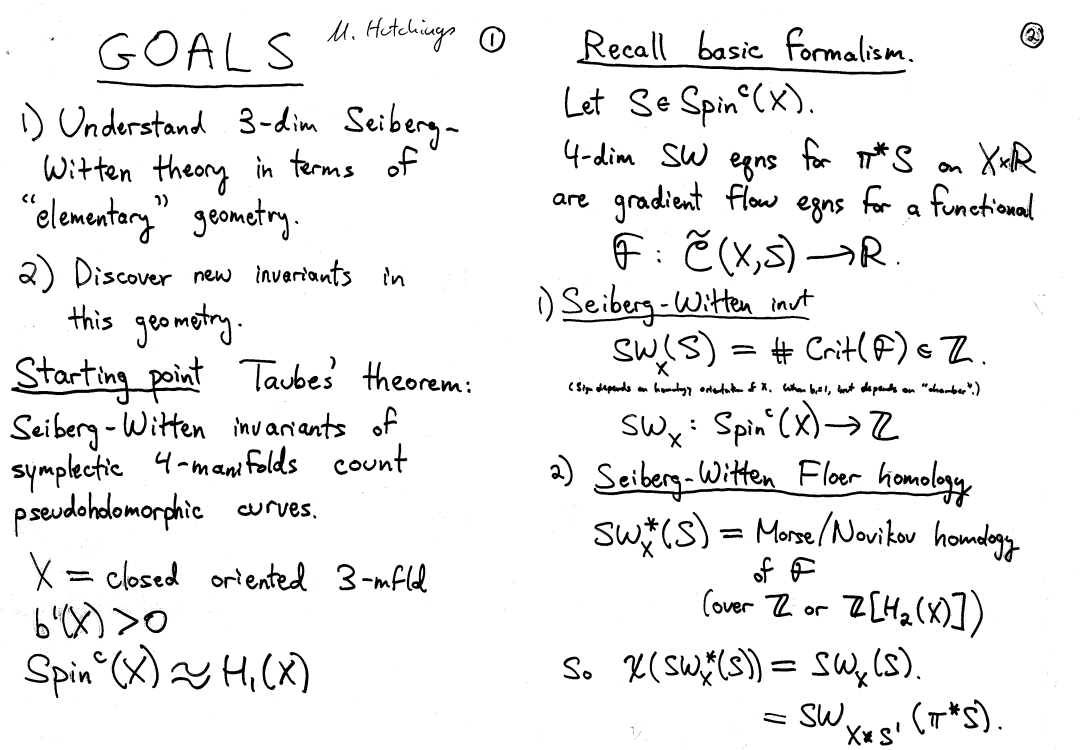 M. Hutchings ①
GOALS
1) Understand 3-dim Seiberg-
Witten theory in terms of
"elementary" geometry.
2) Discover new invariants in
this geometry.
Starting point Taubes' theorem:
Seiberg-Witten invariants of
symplectic 4-manifolds count
pseudoholomorphic curves.
X = closed oriented 3-mfld
b¹(X) > 0
Spinᶜ(X) ≈ H₁(X)
②
Recall basic formalism.
Let S ∈ Spinᶜ(X).
4-dim SW eqns for π*S on X×ℝ
are gradient flow eqns for a functional
F : C̃(X,S) → ℝ.
1) Seiberg-Witten invt
SW_X(S) = # Crit(F) ∈ ℤ.
(Sign depends on homology orientation of X. When b₁=1, invt depends on "chamber".)
SW_X : Spinᶜ(X) → ℤ
2) Seiberg-Witten Floer homology
SW_X^*(S) = Morse/Novikov homology
of F
(over ℤ or ℤ[H₂(X)])
So χ(SW_X^*(S)) = SW_X(S).
= SW_{X×S¹}(π*S).